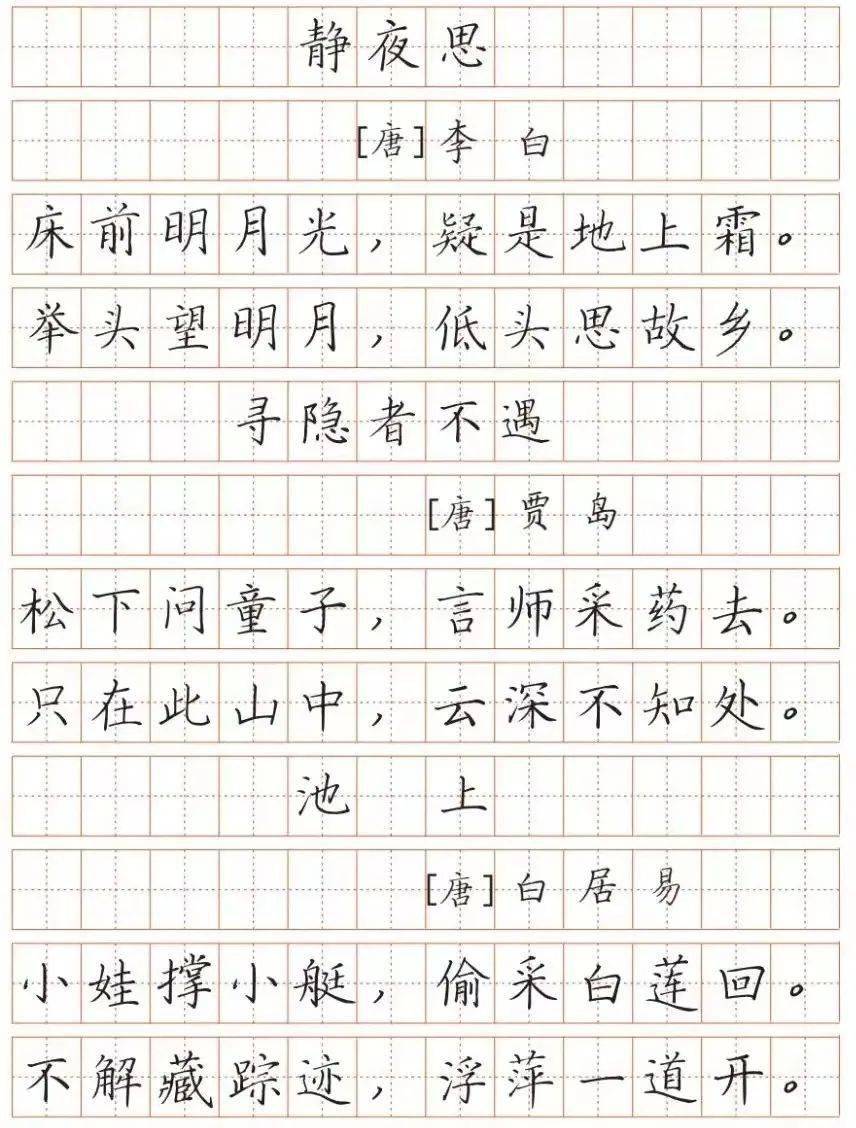 静夜思
[唐]李白
床前明月光，疑是地上霜。
举头望明月，低头思故乡。
寻隐者不遇
[唐]贾岛
松下问童子，言师采药去。
只在此山中，云深不知处。
池上
[唐]白居易
小娃撑小艇，偷采白莲回。
不解藏踪迹，浮萍一道开。